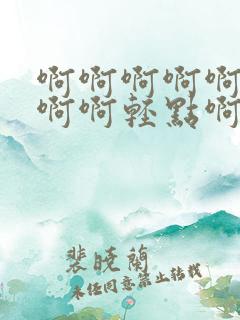 啊啊啊啊啊
啊啊轻點啊
裴晓蘭
未经同意禁止转载